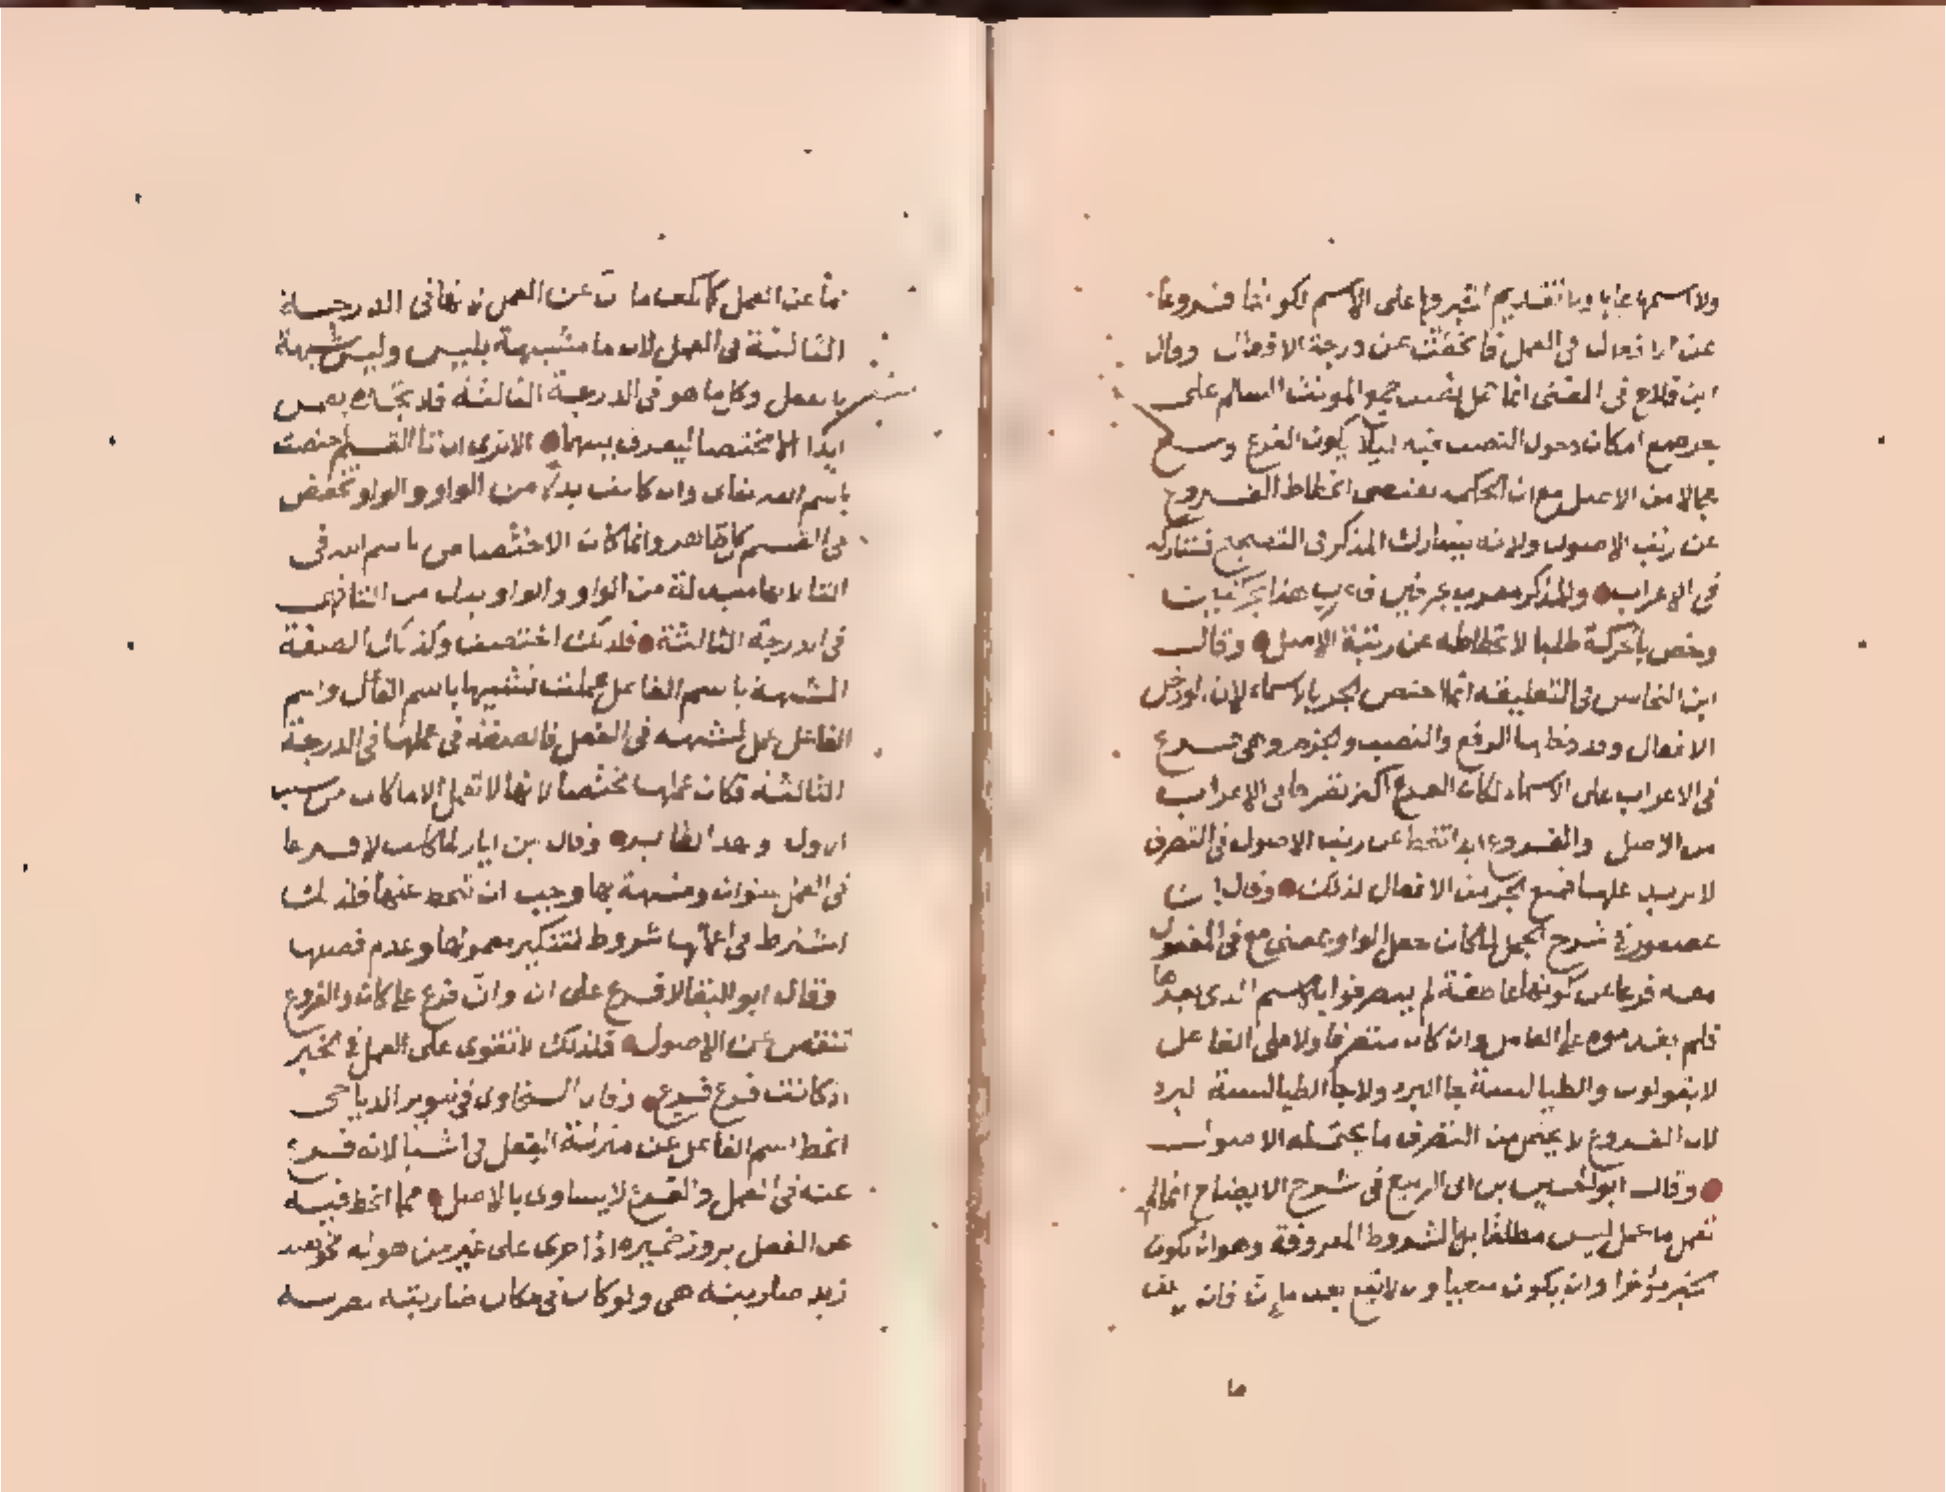 ولا اسمها عليها ولا تقديم اخبارها على الاسم لكونها فروعا
عن الافعال في العمل فانحطت عن درجة الافعال وقال
ابن فلاح في المغنى انما حمل نصب جمع المونث السالم على
جره مع امكان دخول النصب فيه ليلا يكون الفرع اوسع
مجالا من الاصل مع ان الحكمة تقتضى انحطاط الفروع
عن رتب الاصول ولانه يشارك المذكر في التصحيح فشاركه
في الاعراب والمذكر معرب بحرفين هذا بحركتين
وخص بالحركة طلبا لانحطاطه عن رتبة الاصل وقال
ابن النحاس في التعليقة انما اختص الجر بالاسماء لان لو دخل
الافعال وقد دخلها الرفع والنصب والجزم وهى فرع
في الاعراب على الاسماء لكان الفرع اكثر تصرفا في الاعراب
من الاصل والفروع ابدا تنحط عن رتب الاصول في التصرف
لا تزيد عليها فمنع الجر من الافعال لذلك وقال ابن
عصفور في شرح الجمل لما كان جعل الواو بمعنى مع في المفعول
معه فرعا عن كونها عاطفة لم يتصرفوا في الاسم الذى بعدها
فلم يقدموه على العامل وان كان متصرفا ولا على الفاعل
لا يقولون والطيالسة جا البرد ولا جا والطيالسة البرد
لان الفروع لا يحتمل من التصرف ما يحتمله الاصول
وقال ابو الحسين بن ابى الربيع في شرح الايضاح انما لم
تعمل ما عمل ليس مطلقا بل بالشروط المعروفة وهو ان يكون
الخبر مؤخرا وان يكون منفيا وان لا تقع بعد ما ان فان
ما
ما عن العمل كما كفت ما ان عن العمل لانها في الدرجة
الثالثة في العمل لان ما مشبهة بليس وليس مشبهة
بالفعل وكل ما هو في الدرجة الثالثة فلا تجده يعمل
ابدا الا مختصا ليعرف بينهما الا ترى ان تا القسم اختصت
باسم الله تعالى وان كانت بدلا من الواو والواو تخفض
في القسم كل ظاهر وانما كان الاختصاص باسم الله في
التا لانها مبدلة من الواو والواو بدل من البا فهى
في الدرجة الثالثة فلذلك اختصت وكذلك الصفة
المشبهة باسم الفاعل عملت لشبهها باسم الفاعل واسم
الفاعل عمل لشبهه في الفعل فالصفة في عملها في الدرجة
الثالثة فكان عملها مختصا لانها لا تعمل الا ما كان من سبب
الاول وقال بن اياز لما كانت لا فرعا
في العمل بنوان ومشبهة بها وجب ان تنحط عنها فلذلك
اشترط في اعمالها شروط لتنكير معمولها وعدم فصلها
وقال ابو البقا لا فرع على ان وان فرع على كان والفروع
تنقص عن الاصول فلذلك لا تقوى على العمل في الخبر
اذ كانت فرع فرع وقال السخاوى في تنوير الدياجى
انحط اسم الفاعل عن منزلة الفعل في اشيا لانه فرع
عنه في العمل والفرع لا يساوى بالاصل فمما انحط فيه
عن الفعل بروز ضميره اذا جرى على غير من هو له نحو هند
زيد ضاربته هى ولو كان في مكان ضاربته